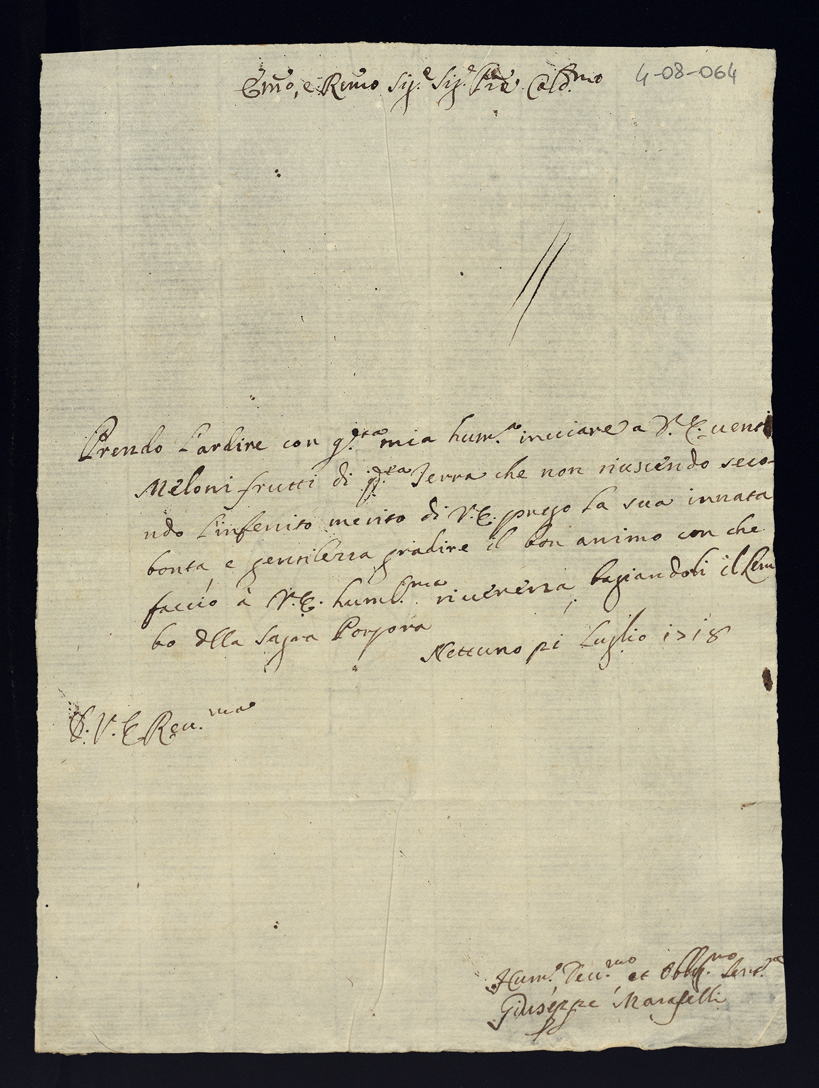 Em̃o, e Rẽmo Sig.e Sig.e P̃rõe Col̃d.mo 4-08-064
Prendo l'ardire con q.sta mia hum.e inuiare a V.E. uenti
Meloni frutti di q.sta Terra che non riuscendo seco-
ndo l'infenito merito di V.E. prego la sua innata
bontà e gentilezza gradire il bon animo con che
faccio à V.E. humil.ma riuerenza bagiandoli il Lem
bo d̃lla Sagra Porpora
Nettuno pi Luglio 1718
D. V. E. Reu.ma
Hum.e Deu.mo et Obblig.mo Seru.re
Giuseppe